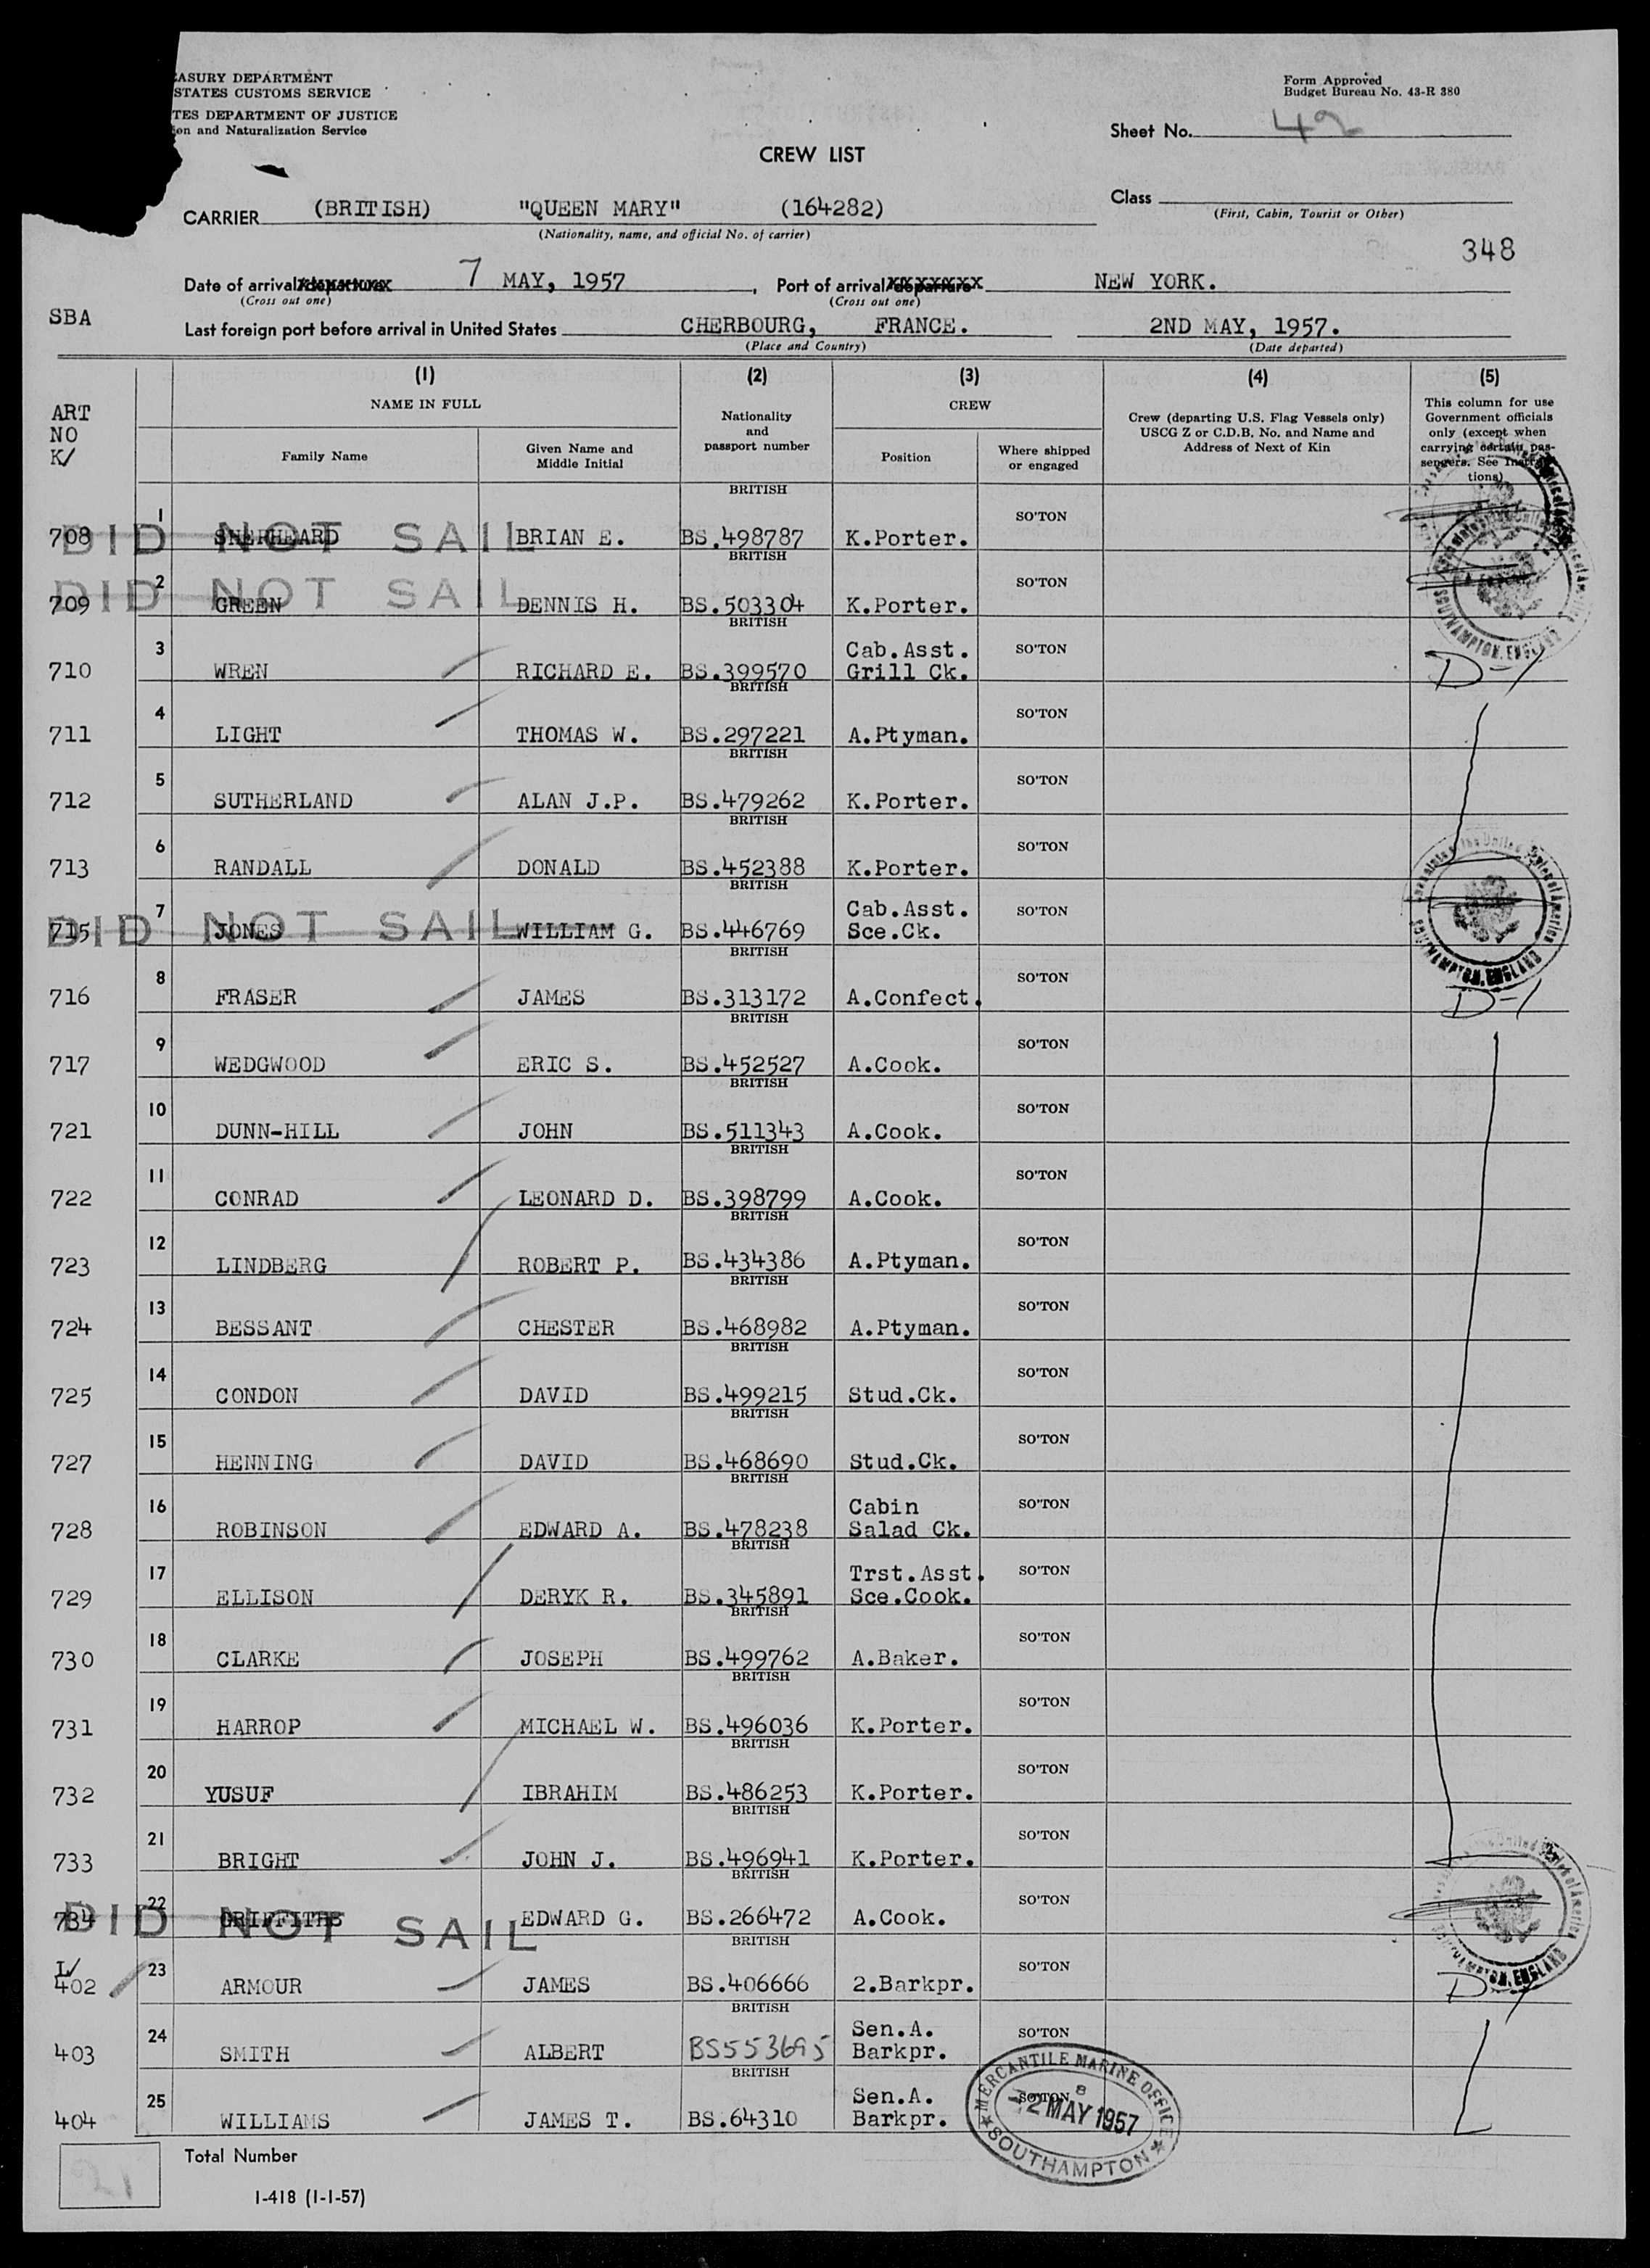 EASURY DEPARTMENT
STATES CUSTOMS SERVICE
TES DEPARTMENT OF JUSTICE
ion and Naturalization Service
Form Approved
Budget Bureau No. 43-R 380
Sheet No. 42
CREW LIST
Class
(First, Cabin, Tourist or Other)
CARRIER (BRITISH) "QUEEN MARY" (164282)
(Nationality, name, and official No. of carrier)
348
Date of arrival/departure 7 MAY, 1957, Port of arrival/departure NEW YORK.
(Cross out one) (Cross out one)
SBA
Last foreign port before arrival in United States CHERBOURG, FRANCE. 2ND MAY, 1957.
(Place and Country) (Date departed)
(1) (2) (3) (4) (5)
ART NO K/
NAME IN FULL
Family Name
Given Name and Middle Initial
Nationality and passport number
CREW
Position
Where shipped or engaged
Crew (departing U.S. Flag Vessels only) USCG Z or C.D.B. No. and Name and Address of Next of Kin
This column for use Government officials only (except when carrying certain passengers. See Instructions)
708 1 SHEPHEARD BRIAN E. BRITISH BS.498787 K.Porter. SO'TON
DID NOT SAIL
709 2 GREEN DENNIS H. BRITISH BS.503304 K.Porter. SO'TON
DID NOT SAIL
SOUTHAMPTON, ENGLAND
710 3 WREN RICHARD E. BRITISH BS.399570 Cab.Asst. Grill Ck. SO'TON D-1
711 4 LIGHT THOMAS W. BRITISH BS.297221 A.Ptyman. SO'TON
712 5 SUTHERLAND ALAN J.P. BRITISH BS.479262 K.Porter. SO'TON
713 6 RANDALL DONALD BRITISH BS.452388 K.Porter. SO'TON
715 7 JONES WILLIAM G. BRITISH BS.446769 Cab.Asst. Sce.Ck. SO'TON
DID NOT SAIL
SOUTHAMPTON, ENGLAND
716 8 FRASER JAMES BRITISH BS.313172 A.Confect. SO'TON D-1
717 9 WEDGWOOD ERIC S. BRITISH BS.452527 A.Cook. SO'TON
721 10 DUNN-HILL JOHN BRITISH BS.511343 A.Cook. SO'TON
722 11 CONRAD LEONARD D. BRITISH BS.398799 A.Cook. SO'TON
723 12 LINDBERG ROBERT P. BRITISH BS.434386 A.Ptyman. SO'TON
724 13 BESSANT CHESTER BRITISH BS.468982 A.Ptyman. SO'TON
725 14 CONDON DAVID BRITISH BS.499215 Stud.Ck. SO'TON
727 15 HENNING DAVID BRITISH BS.468690 Stud.Ck. SO'TON
728 16 ROBINSON EDWARD A. BRITISH BS.478238 Cabin Salad Ck. SO'TON
729 17 ELLISON DERYK R. BRITISH BS.345891 Trst.Asst. Sce.Cook. SO'TON
730 18 CLARKE JOSEPH BRITISH BS.499762 A.Baker. SO'TON
731 19 HARROP MICHAEL W. BRITISH BS.496036 K.Porter. SO'TON
732 20 YUSUF IBRAHIM BRITISH BS.486253 K.Porter. SO'TON
733 21 BRIGHT JOHN J. BRITISH BS.496941 K.Porter. SO'TON
734 22 GRIFFITHS EDWARD G. BRITISH BS.266472 A.Cook. SO'TON
DID NOT SAIL
SOUTHAMPTON, ENGLAND
L/ 402 23 ARMOUR JAMES BRITISH BS.406666 2.Barkpr. SO'TON D-1
403 24 SMITH ALBERT BRITISH BS553695 Sen.A. Barkpr. SO'TON
404 25 WILLIAMS JAMES T. BRITISH BS.64310 Sen.A. Barkpr. SO'TON
MERCANTILE MARINE OFFICE
8
-2 MAY 1957
SOUTHAMPTON
21 Total Number
I-418 (1-1-57)